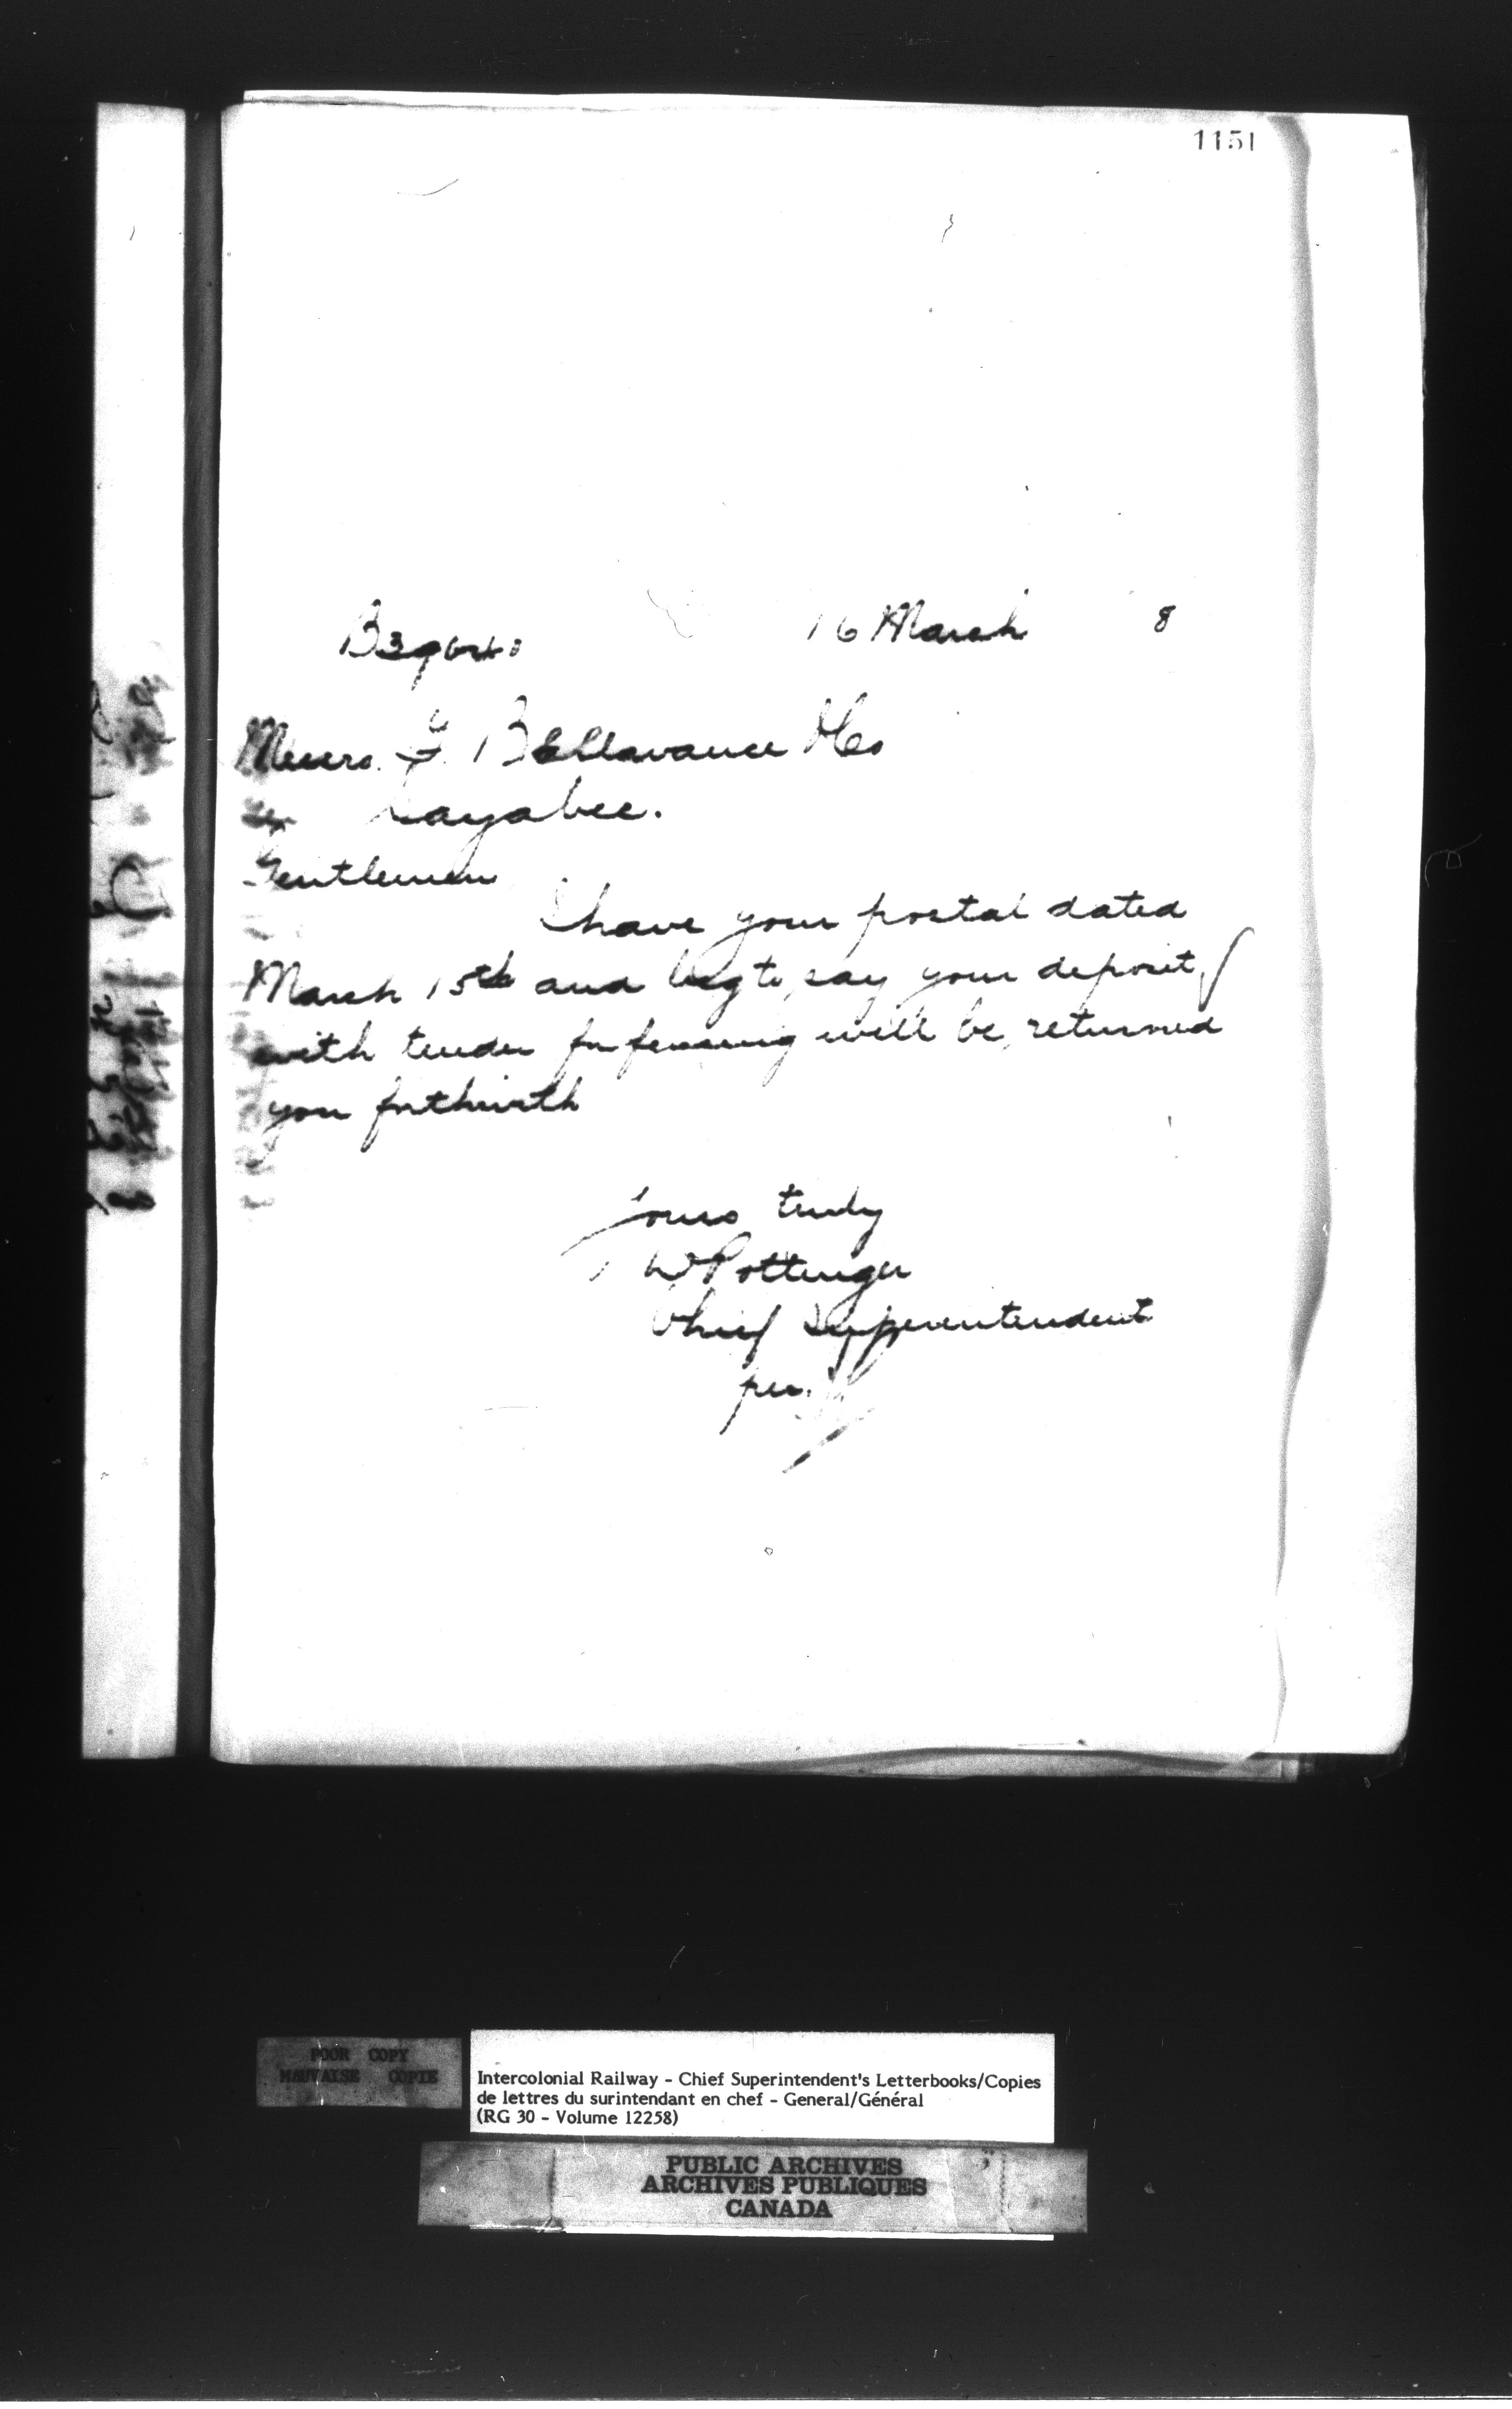 1151
16 March 8
Messrs. F. Bellavance & Co
Sayabec.
Gentlemen
I have your postal dated
March 15th and beg to say your deposit
with tender for fencing will be returned
you forthwith
Yours truly
D Pottinger
Chief Superintendent
per.
POOR COPY
MAUVAISE COPIE
Intercolonial Railway - Chief Superintendent's Letterbooks/Copies
de lettres du surintendant en chef - General/Général
(RG 30 - Volume 12258)
PUBLIC ARCHIVES
ARCHIVES PUBLIQUES
CANADA